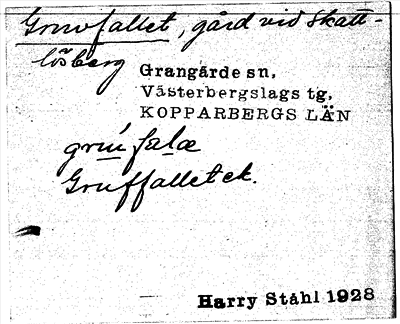 Gruvfallet, gård vid Skatt-
lösberg
Grangärde sn,
Västerbergslags tg,
KOPPARBERGS LÄN
grufalæ
Gruffallet ek.
Harry Ståhl 1928